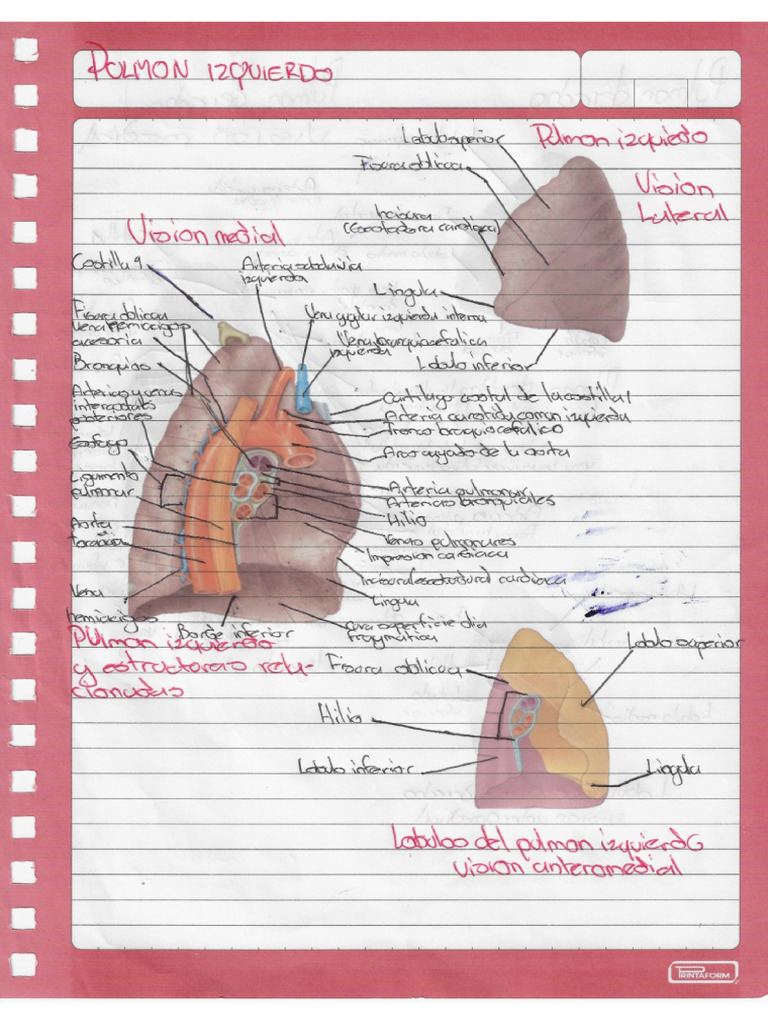 PULMON IZQUIERDO
Pulmon izquiedo
Vision
Lateral
Lobulo superior
Fisura oblicua
Incisura
(Escotadora cardiaca)
Lingula
Lobulo inferior
Vision medial
Costilla 1
Arteria subclavia
izquierda
Vena yugular izquierda interna
Vena branquiocefalica
izquierda
Fisura oblicua
Vena hemiacigos
accesoria
Bronquios
Arterias y venas
intercostales
posteriores
Esofago
Ligamento
pulmonar
Aorta
toracica
Vena
hemiacigos
Borde inferior
Cartilago costal de la costilla 1
Arteria carotida comun izquierda
Tronco broquiocefalico
Arco cayado de la aorta
Arteria pulmonar
Arterias bronquiales
Hilio
Venas pulmonares
Impresion cardiaca
Lingula
Cara superficie dia
fragmatica
Pulmon izquierdo
y estructuras rela-
cionadas
Fisura oblicua
Lobulo superior
Hilio
Lobulo inferior
Lingula
Lobulos del pulmon izquierdo
vision anteromedial
PRINTAFORM